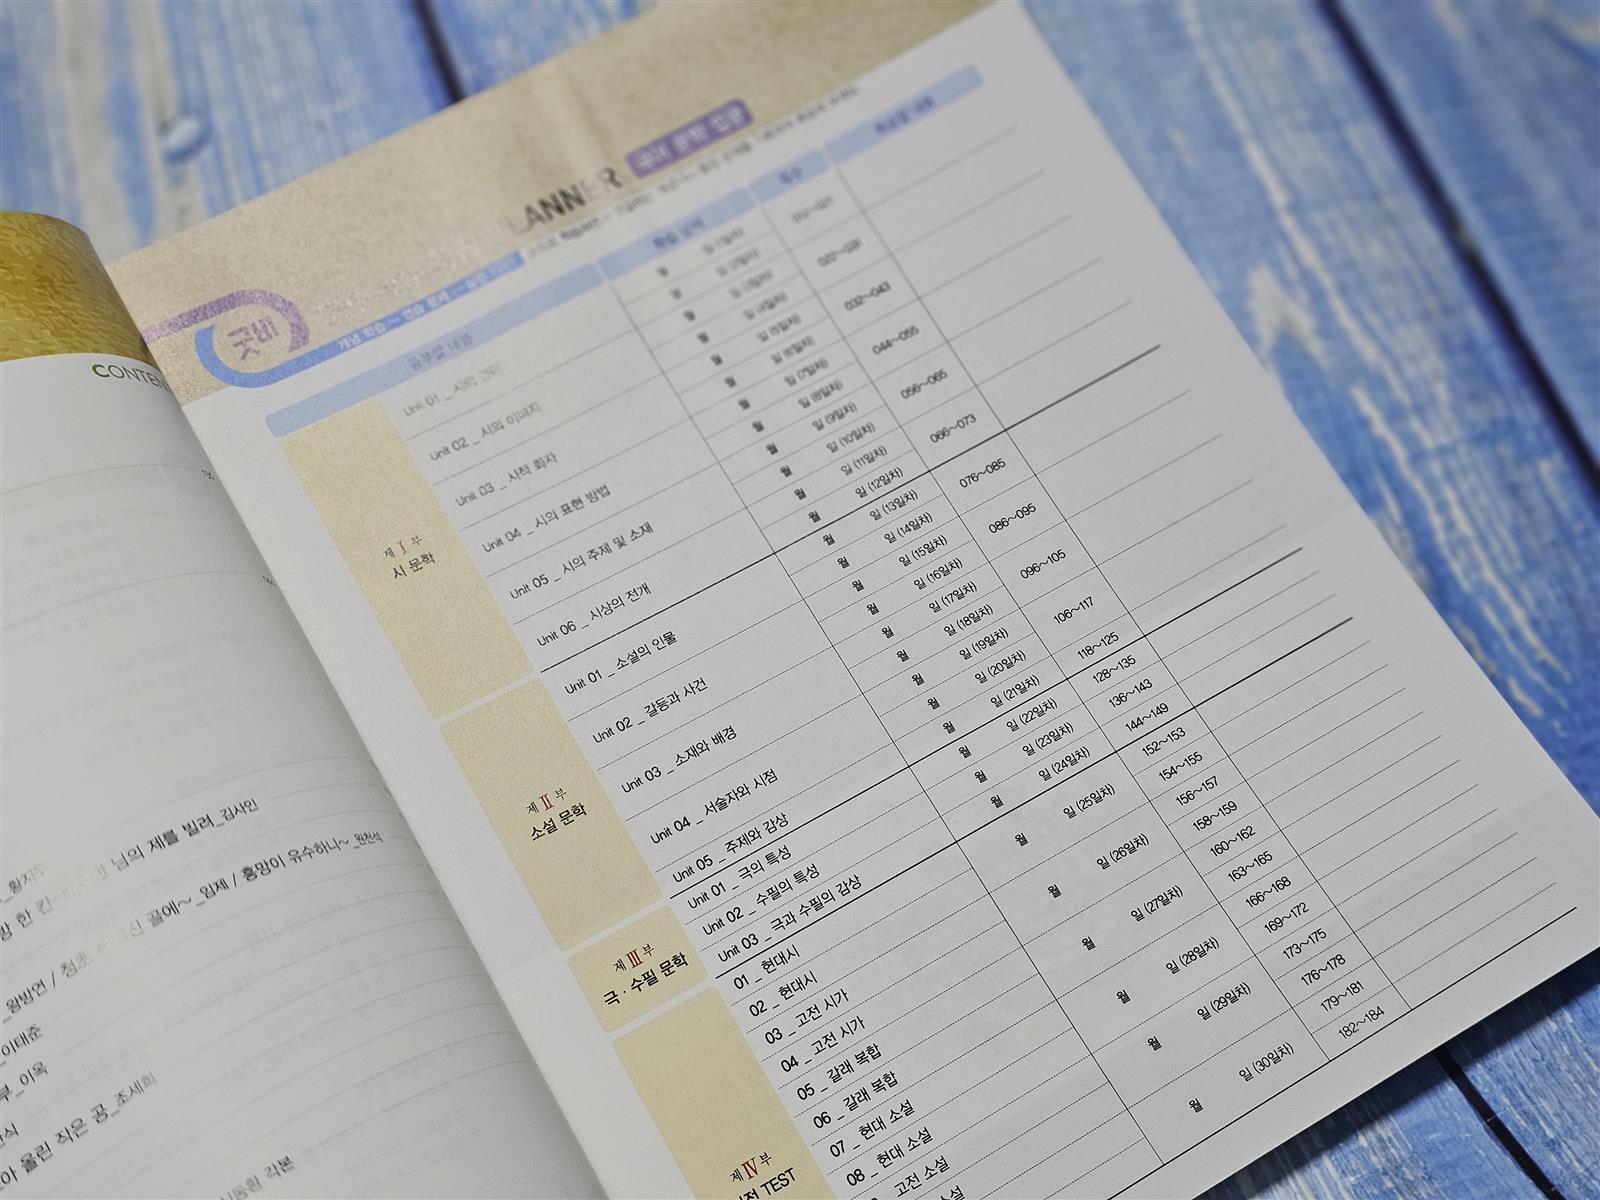 CONTEN
김사인
님의 제를 빌려_김사인
흥망이 유수하나~ _원천석
골에~ _임제 / 흥망이 유수하나~ _원천석
_왕방연 /
_이태준
부_이옥
올린 작은 공_조세희
각본
LANNER 국어 문학 입문
굿비
개념 학습 ~ 연습 문제 ~ 실전 TEST
공부할 내용 학습 날짜 쪽수
제Ⅰ부
시 문학
Unit 01 _ 시의 언어
Unit 02 _ 시의 이미지
Unit 03 _ 시적 화자 032~043
Unit 04 _ 시의 표현 방법 044~055
Unit 05 _ 시의 주제 및 소재 056~065
Unit 06 _ 시상의 전개 066~073
월 일 (7일차)
월 일 (8일차)
월 일 (9일차)
월 일 (10일차)
월 일 (11일차)
월 일 (12일차)
제Ⅱ부
소설 문학
Unit 01 _ 소설의 인물 월 일 (13일차) 076~085
월 일 (14일차)
Unit 02 _ 갈등과 사건 월 일 (15일차) 086~095
월 일 (16일차)
Unit 03 _ 소재와 배경 월 일 (17일차) 096~105
월 일 (18일차)
Unit 04 _ 서술자와 시점 월 일 (19일차) 106~117
월 일 (20일차)
Unit 05 _ 주제와 감상 월 일 (21일차) 118~125
제Ⅲ부
극 · 수필 문학
Unit 01 _ 극의 특성 월 일 (22일차) 128~135
Unit 02 _ 수필의 특성 월 일 (23일차) 136~143
Unit 03 _ 극과 수필의 감상 월 일 (24일차) 144~149
제Ⅳ부
TEST
01 _ 현대시 월 일 (25일차) 152~153
02 _ 현대시 154~155
03 _ 고전 시가 월 일 (26일차) 156~157
04 _ 고전 시가 158~159
05 _ 갈래 복합 월 일 (27일차) 160~162
06 _ 갈래 복합 163~165
07 _ 현대 소설 월 일 (28일차) 166~168
08 _ 현대 소설 169~172
고전 소설 월 일 (29일차) 173~175
176~178
월 일 (30일차) 179~181
182~184